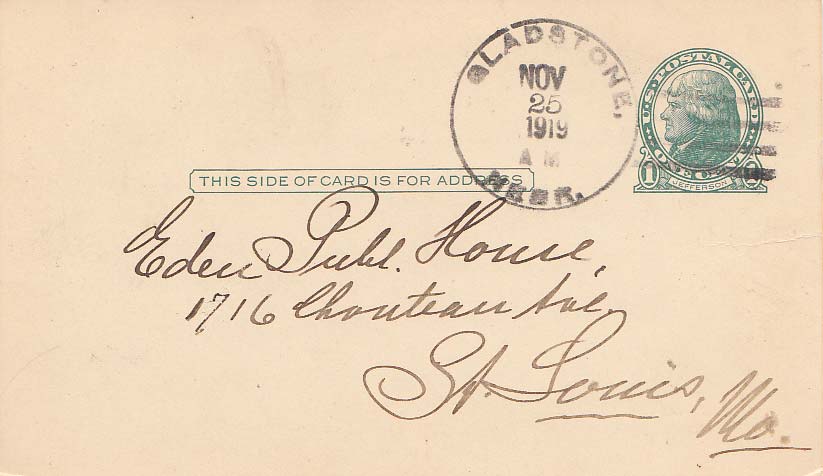 GLADSTONE,
NOV
25
1919
A M
NEBR.
U.S. POSTAL CARD
ONE CENT
1
JEFFERSON
THIS SIDE OF CARD IS FOR ADDRESS
Eden Publ. House,
1716 Chouteau Ave.
St. Louis, Mo.